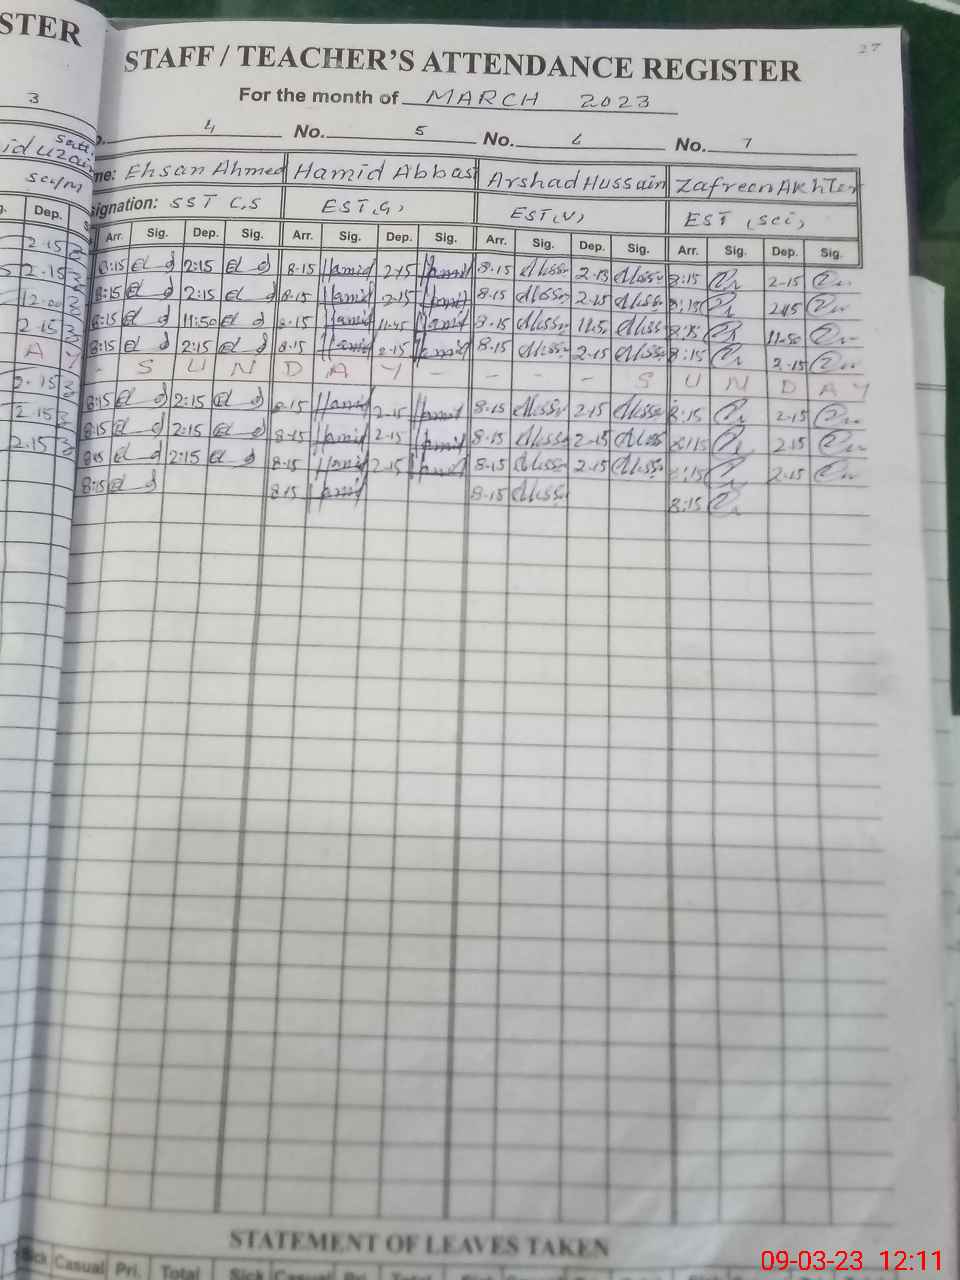 STER
27
STAFF / TEACHER'S ATTENDANCE REGISTER
For the month of MARCH 2023
3
4 No. 5 No. 6 No. 7
me: Ehsan Ahmed Hamid Abbas Arshad Hussain Zafreen Akhter
signation: SST C,S EST(G) EST(V) EST (Sci)
Dep. Arr. Sig. Dep. Sig. Arr. Sig. Dep. Sig. Arr. Sig. Dep. Sig. Arr. Sig. Dep. Sig.
2.15 8:15 2:15 8.15 Hamid 2.15 Hamid 8.15 2.15 8:15 2.15
2.15 8:15 2:15 8.15 Hamid 2.15 Hamid 8.15 2.15 8:15 2.15
12.00 8:15 11:50 8.15 Hamid 11.45 Hamid 8.15 11.5 8:15 11.50
2.15 8:15 2:15 8.15 Hamid 2.15 Hamid 8.15 2.15 8:15 2.15
A Y - S U N D A Y - - - - S U N D A Y
2.15 8:15 2:15 8.15 Hamid 2.15 Hamid 8.15 2.15 8:15 2.15
2.15 8:15 2:15 8.15 Hamid 2.15 Hamid 8.15 2.15 8:15 2.15
2.15 8:15 2:15 8.15 Hamid 2.15 Hamid 8.15 2.15 8:15 2.15
8:15 8.15 Hamid 8.15 8:15
STATEMENT OF LEAVES TAKEN
Sick Casual Pri. Total Sick Casual Pri. Total
09-03-23 12:11